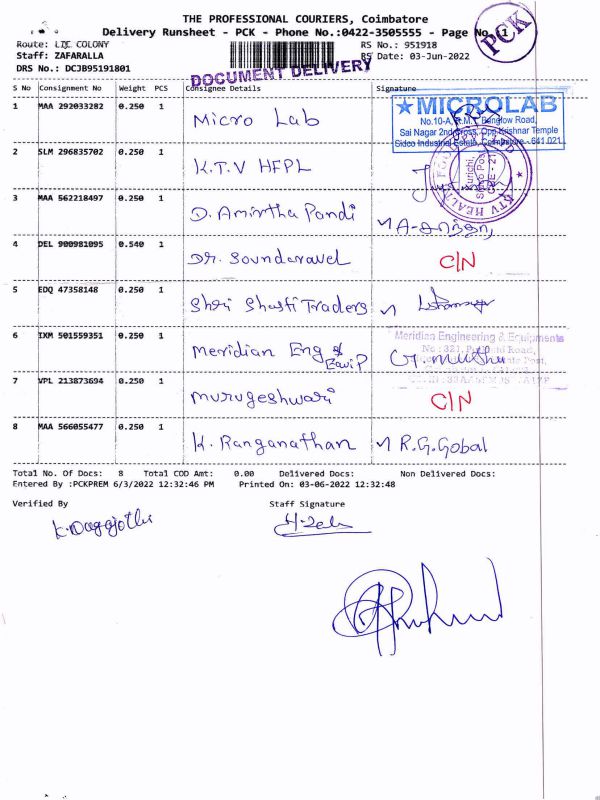 THE PROFESSIONAL COURIERS, Coimbatore
Delivery Runsheet - PCK - Phone No.:0422-3505555 - Page No. 1
PCK
Route: LIC COLONY
RS No.: 951918
Staff: ZAFARALLA
RS Date: 03-Jun-2022
DRS No.: DCJB95191801
DOCUMENT DELIVERY
S No Consignment No Weight PCS Consignee Details Signature
1 MAA 292033282 0.250 1 Micro Lab
★MICROLAB
No.10-A, R.M. Banglow Road,
Sai Nagar 2nd Cross, Opp.Krishnar Temple
Sidco Industrial Estate, Coimbatore - 641 021
2 SLM 296835702 0.250 1 K.T.V HFPL
KTV HEALTH FOOD
Kurichi,
Sidco Post
CBE - 21
3 MAA 562218497 0.250 1 D. Amirtha Pandi
4 DEL 900981095 0.540 1 Dr. Soundaravel C/N
5 EDQ 47358148 0.250 1 Shri Shasti Traders
6 IXM 501559351 0.250 1 Meridian Eng & Equip G. Muthu
Meridian Engineering & Equipments
No : 321, Road,
7 VPL 213873694 0.250 1 Murugeshwari C/N
8 MAA 566055477 0.250 1 K. Ranganathan R.G.Gobal
Total No. Of Docs: 8 Total COD Amt: 0.00 Delivered Docs: Non Delivered Docs:
Entered By :PCKPREM 6/3/2022 12:32:46 PM Printed On: 03-06-2022 12:32:48
Verified By Staff Signature